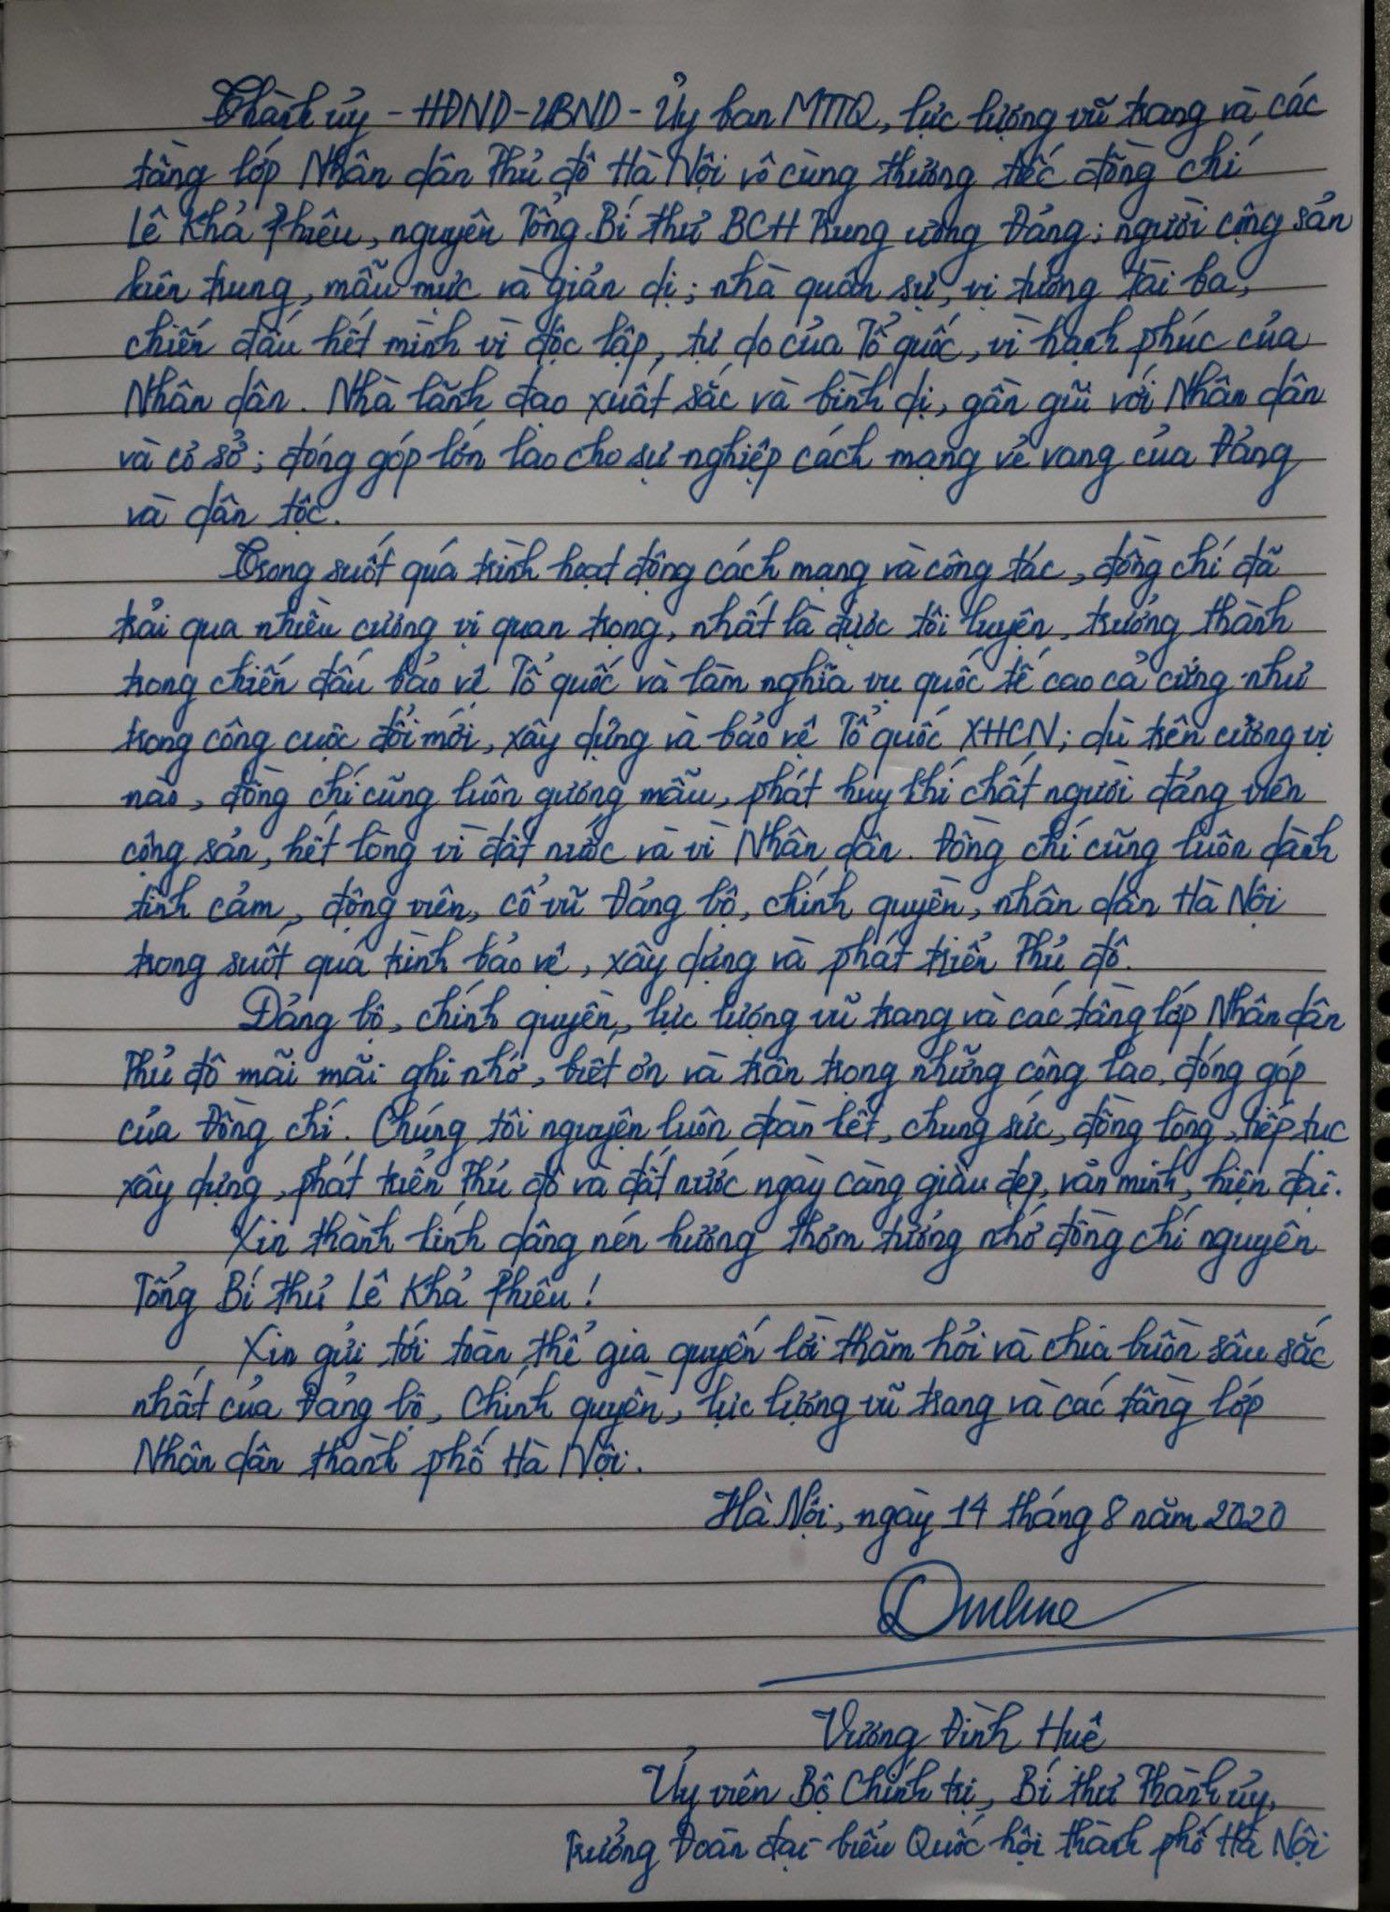 Thành ủy - HĐND-UBND - Ủy ban MTTQ, lực lượng vũ trang và các
tầng lớp Nhân dân Thủ đô Hà Nội vô cùng thương tiếc đồng chí
Lê Khả Phiêu, nguyên Tổng Bí thư BCH Trung ương Đảng; người cộng sản
kiên trung, mẫu mực và giản dị; nhà quân sự, vị tướng tài ba,
chiến đấu hết mình vì độc lập, tự do của Tổ quốc, vì hạnh phúc của
Nhân dân. Nhà lãnh đạo xuất sắc và bình dị, gần gũi với Nhân dân
và cơ sở; đóng góp lớn lao cho sự nghiệp cách mạng vẻ vang của Đảng
và dân tộc.
Trong suốt quá trình hoạt động cách mạng và công tác, đồng chí đã
trải qua nhiều cương vị quan trọng, nhất là được tôi luyện, trưởng thành
trong chiến đấu bảo vệ Tổ quốc và làm nghĩa vụ quốc tế cao cả cũng như
trong công cuộc đổi mới, xây dựng và bảo vệ Tổ quốc XHCN; dù trên cương vị
nào, đồng chí cũng luôn gương mẫu, phát huy khí chất người đảng viên
cộng sản, hết lòng vì đất nước và vì Nhân dân. Đồng chí cũng luôn dành
tình cảm, động viên, cổ vũ Đảng bộ, chính quyền, nhân dân Hà Nội
trong suốt quá trình bảo vệ, xây dựng và phát triển Thủ đô.
Đảng bộ, chính quyền, lực lượng vũ trang và các tầng lớp Nhân dân
Thủ đô mãi mãi ghi nhớ, biết ơn và trân trọng những công lao, đóng góp
của Đồng chí. Chúng tôi nguyện luôn đoàn kết, chung sức, đồng lòng, tiếp tục
xây dựng, phát triển Thủ đô và đất nước ngày càng giàu đẹp, văn minh, hiện đại.
Xin thành kính dâng nén hương thơm tưởng nhớ đồng chí nguyên
Tổng Bí thư Lê Khả Phiêu!
Xin gửi tới toàn thể gia quyến lời thăm hỏi và chia buồn sâu sắc
nhất của Đảng bộ, Chính quyền, lực lượng vũ trang và các tầng lớp
Nhân dân thành phố Hà Nội.
Hà Nội, ngày 14 tháng 8 năm 2020
Vương Đình Huệ
Ủy viên Bộ Chính trị, Bí thư Thành ủy,
Trưởng Đoàn đại biểu Quốc hội thành phố Hà Nội